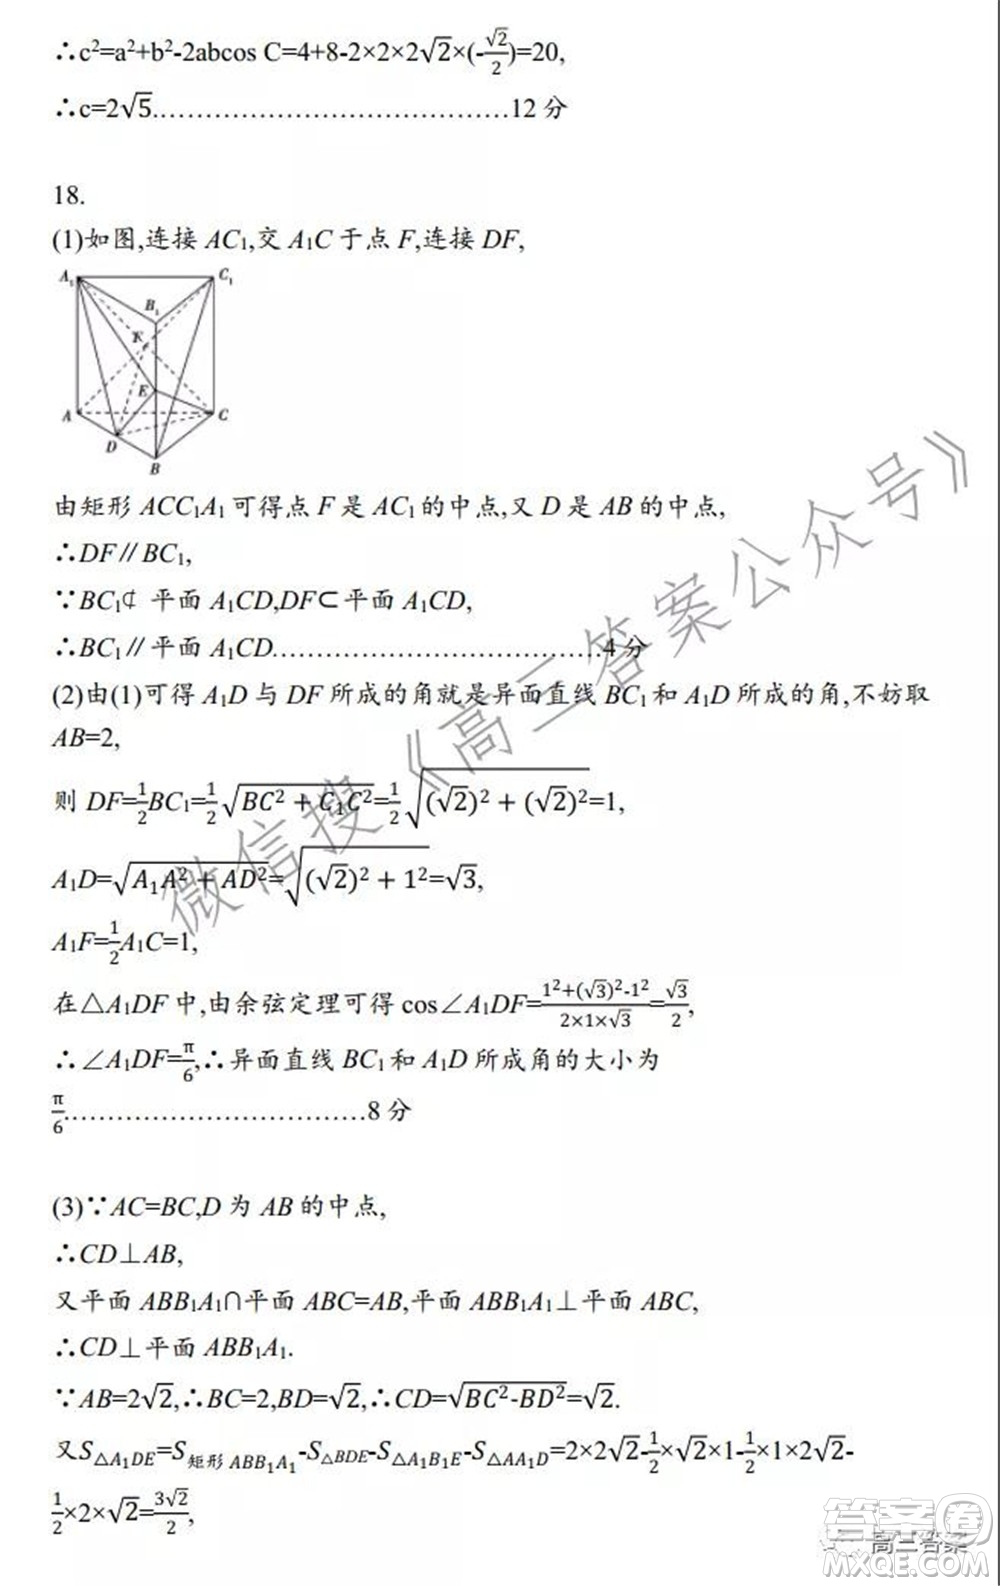 ∴c²=a²+b²-2abcos C=4+8-2×2×2√2×(-√2/2)=20,
∴c=2√5.......................................12 分
18.
(1)如图,连接 AC₁,交 A₁C 于点 F,连接 DF,
A₁
C₁
B₁
F
E
A
C
D
B
由矩形 ACC₁A₁ 可得点 F 是 AC₁ 的中点,又 D 是 AB 的中点,
∴DF∥BC₁,
∵BC₁⊄ 平面 A₁CD,DF⊂平面 A₁CD,
∴BC₁∥平面 A₁CD....................................4 分
(2)由(1)可得 A₁D 与 DF 所成的角就是异面直线 BC₁ 和 A₁D 所成的角,不妨取
AB=2,
则 DF=1/2BC₁=1/2√(BC²+C₁C²)=1/2√((√2)²+(√2)²)=1,
A₁D=√(A₁A²+AD²)=√((√2)²+1²)=√3,
A₁F=1/2A₁C=1,
在△A₁DF 中,由余弦定理可得 cos∠A₁DF=(1²+(√3)²-1²)/(2×1×√3)=√3/2,
∴∠A₁DF=π/6,∴异面直线 BC₁ 和 A₁D 所成角的大小为
π/6.................................8 分
(3)∵AC=BC,D 为 AB 的中点,
∴CD⊥AB,
又平面 ABB₁A₁∩平面 ABC=AB,平面 ABB₁A₁⊥平面 ABC,
∴CD⊥平面 ABB₁A₁.
∵AB=2√2,∴BC=2,BD=√2,∴CD=√(BC²-BD²)=√2.
又S△A₁DE=S矩形 ABB₁A₁-S△BDE-S△A₁B₁E-S△AA₁D=2×2√2-1/2×√2×1-1/2×1×2√2-
1/2×2×√2=3√2/2,
微信搜《高三答案公众号》
高三答案
答案圈
MXQE.COM